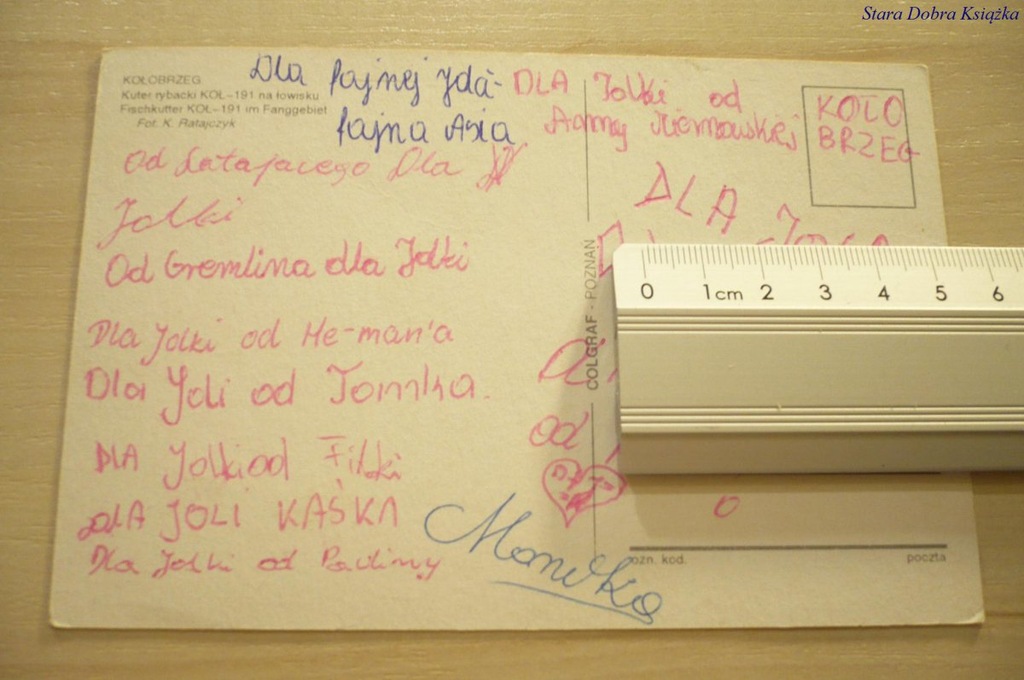 Stara Dobra Książka
KOŁOBRZEG
Kuter rybacki KOŁ-191 na łowisku
Fischkutter KOŁ-191 im Fanggebiet
Fot. K. Ratajczyk
Dla fajnej
fajna Asia
Od Latającego Dla
Jolki
Od Gremlina dla Jolki
Dla Jolki od He-man'a
Dla Joli od Tomka.
DLA Jolki od Filki
DLA JOLI KAŚKA
Dla Jolki od Pauliny
Moniką
COLGRAF - POZNAŃ
DLA Jolki od
Anny
KOŁO
BRZEG
DLA
od
0 1cm 2 3 4 5 6
ozn. kod. poczta